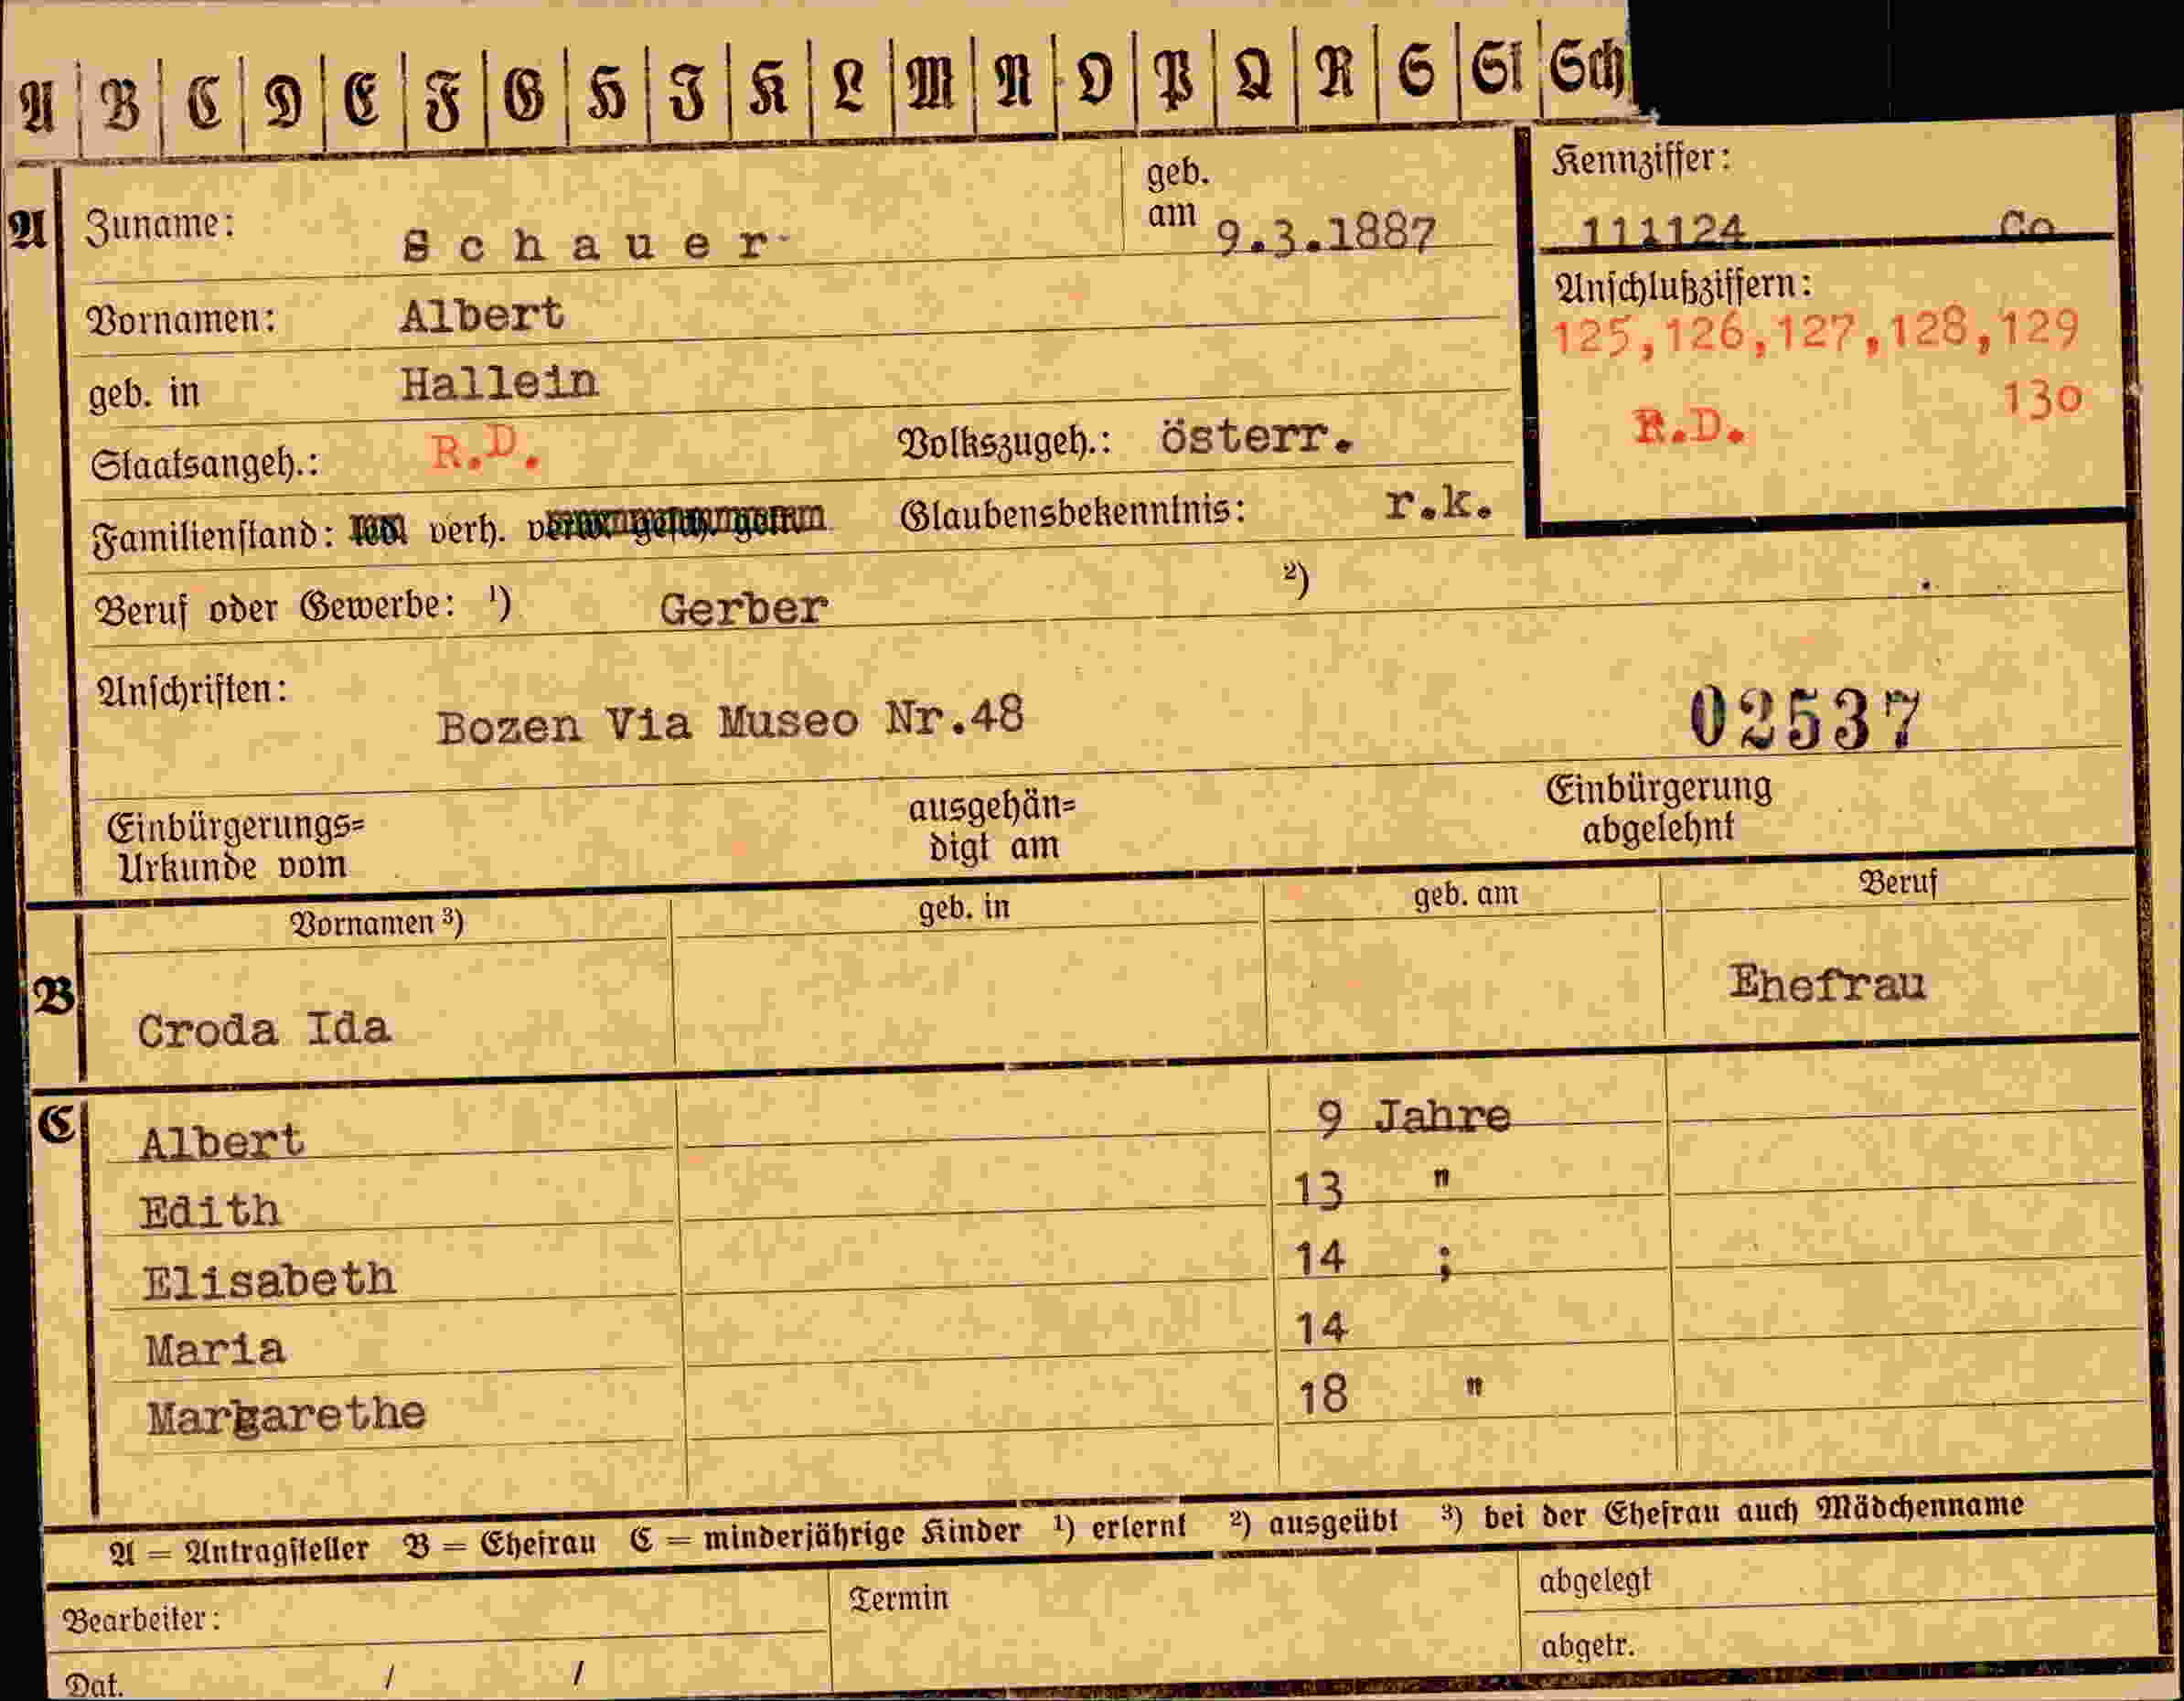 A B C D E F G H I K L M N O P Q R S St Sch
A Zuname: Schauer geb. am 9.3.1887
Kennziffer:
111124 Co
Vornamen: Albert
Anschlußziffern:
125,126,127,128,129
130
R.D.
geb. in Hallein
Staatsangeh.: R.D. Volkszugeh.: österr.
Familienstand: verh. Glaubensbekenntnis: r.k.
Beruf oder Gewerbe: ¹) Gerber ²)
Anschriften:
Bozen Via Museo Nr.48 02537
Einbürgerungs=
Urkunde vom
ausgehän=
digt am
Einbürgerung
abgelehnt
Vornamen ³) geb. in geb. am Beruf
B Croda Ida Ehefrau
C Albert 9 Jahre
Edith 13 "
Elisabeth 14 ;
Maria 14
Margarethe 18 "
A = Antragsteller B = Ehefrau C = minderjährige Kinder ¹) erlernt ²) ausgeübt ³) bei der Ehefrau auch Mädchenname
Bearbeiter:
Termin
abgelegt
abgetr.
Dat. / /